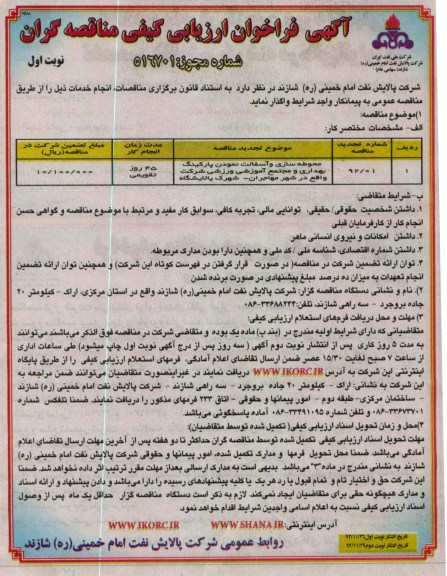 آگهی فراخوان ارزیابی کیفی مناقصه گران
شماره مجوز: ۵۱۶۷۰۱
نوبت اول
شرکت ملی نفت ایران
شرکت پالایش نفت امام خمینی (ره)
شرکت پالایش نفت امام خمینی (ره) شازند در نظر دارد به استناد قانون برگزاری مناقصات، انجام خدمات ذیل را از طریق
مناقصه عمومی به پیمانکار واجد شرایط واگذار نماید.
۱)موضوع مناقصه:
الف- مشخصات مختصر کار:
ردیف شماره تجدید مناقصه موضوع تجدید مناقصه مدت زمان انجام کار مبلغ تضمین شرکت در مناقصه(ریال)
۱ ۹۲/۰۱ محوطه سازی و آسفالت نمودن پارکینگ بهداری و مجتمع آموزشی ورزشی شرکت واقع در شهر مهاجران- شهرک پالایشگاه ۴۵ روز تقویمی ۱۰/۱۰۰/۰۰۰
ب- شرایط متقاضی:
۱. داشتن شخصیت حقوقی/ حقیقی، توانایی مالی، تجربه کافی، سوابق کار مفید و مرتبط با موضوع مناقصه و گواهی حسن
انجام کار از کارفرمایان قبلی
۲. داشتن امکانات و نیروی انسانی ماهر
۳. داشتن شماره اقتصادی، شناسه ملی / کد ملی و همچنین دارا بودن مدارک مربوطه.
۴. توان ارائه تضمین شرکت در مناقصه( در صورت قرار گرفتن در فهرست کوتاه این شرکت) و همچنین توان ارائه تضمین
انجام تعهدات به میزان ده درصد مبلغ پیشنهادی در صورت برنده شدن
۲) نام و نشانی دستگاه مناقصه گزار: شرکت پالایش نفت امام خمینی(ره) شازند واقع در استان مرکزی، اراک - کیلومتر ۲۰
جاده بروجرد - سه راهی شازند، تلفن:
۳) مهلت و محل دریافت فرم‌های استعلام ارزیابی کیفی:
متقاضیانی که دارای شرایط اولیه مندرج در (بند ب) ماده یک بوده و متقاضی شرکت در مناقصه فوق الذکر میباشند می‌توانند
به مدت ۵ روز کاری پس از انتشار نوبت دوم آگهی ( سه روز پس از درج آگهی نوبت اول چاپ میشود) طی ساعات اداری
از ساعت ۷ صبح لغایت ۱۵/۳۰ عصر ضمن ارسال تقاضای اعلام آمادگی، فرمهای استعلام ارزیابی کیفی را از طریق پایگاه
اینترنتی این شرکت به آدرس WWW.IKORC.IR دریافت نمایند در غیراینصورت متقاضیان می‌توانند ضمن مراجعه به
این شرکت به نشانی: اراک - کیلومتر ۲۰ جاده بروجرد - سه راهی شازند - شرکت پالایش نفت امام خمینی (ره) شازند
- ساختمان مرکزی- طبقه دوم - امور پیمانها و حقوقی - اتاق ۲۳۳ فرمهای مذکور را دریافت نمایند. ضمنا تلفکس شماره
۰۸۶-۳۳۶۷۳۷۰۱ و تلفن شماره ۰۸۶-۳۳۴۹۱۰۹۵ آماده پاسخگوئی می‌باشد.
۴)محل و زمان تحویل اسناد ارزیابی کیفی( تکمیل شده توسط متقاضیان):
مهلت تحویل اسناد ارزیابی کیفی تکمیل شده توسط مناقصه گران حداکثر تا دو هفته پس از آخرین مهلت ارسال تقاضای اعلام
آمادگی می‌باشد ضمنا محل تحویل فرمها و مدارک تکمیل شده، امور پیمانها و حقوقی شرکت پالایش نفت امام خمینی (ره)
شازند به نشانی مندرج در ماده "۳" می‌باشد. بدیهی است به مدارک ارسالی بعد از مهلت مقرر ترتیب اثر داده نخواهد شد. ضمنا
این شرکت حق و اختیار تام و تمام قبول یا رد هر یک یا کلیه پیشنهادهای رسیده را دارا می‌باشد و دادن پیشنهاد و ارائه اسناد
و مدارک هیچگونه حقی برای متقاضیان ایجاد نمی‌کند. لازم به ذکر است دستگاه مناقصه گزار حداقل یک ماه پس از وصول
اسناد ارزیابی کیفی نسبت به اعلام اسامی واجدین شرایط اقدام خواهد نمود.
آدرس اینترنتی: WWW.SHANA.IR WWW.IKORC.IR
روابط عمومی شرکت پالایش نفت امام خمینی(ره) شازند
تاریخ انتشار نوبت اول:
تاریخ انتشار نوبت دوم: